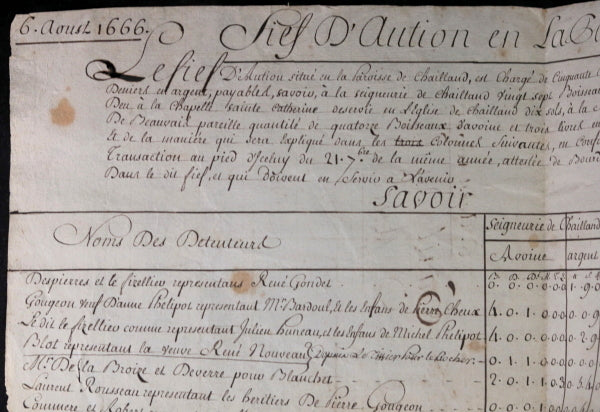 6. Aoust 1666.
Fief D'Aution en La
Le fief D'Aution situé en la Paroisse de Chailland, est Chargé de Cinquante
Deniers en argent, payables, savoir, à la seigneurie de Chailland vingt sept Boisseaux
Deu à la Chapelle sainte Catherine deservie en L'Eglise de Chailland dix sols, à la
De Beauvais pareille quantité de quatorze Boisseaux Davoine et trois livres en
Et de la manière qui sera Expliqué dans les trois Colonnes Suivantes, en
Transaction au pied D'celuy du 21. 7.bre de la même année, attestée de
Dans le dit fief, et qui Doivent en Servir a L'avenir.
Savoir
Seigneurie de Chailland
Noms Des Detenteurs
Avoine argent
Despierres et le fizellier representans René Gondet
0. 0. 0. 0. 0
Gougeon veuf D'anne Phelipot representant Mr. Bardoul, et les Enfans de Pierre Cheux
4. 0. 1. 0. 0
Le Dit le fizellier comme representant Julien Huneau, et les Enfans de Michel Phelipot
4. 0. 1. 0. 0
Blot representant la veuve René Nouveau
0. 1. 1. 0. 0
Mr. De La Broize et Deverre pour Blanchet
2. 0. 1. 0. 3
Laurent Rousseau representant les heritiers De Pierre Gougeon
4. 0. 1. 0